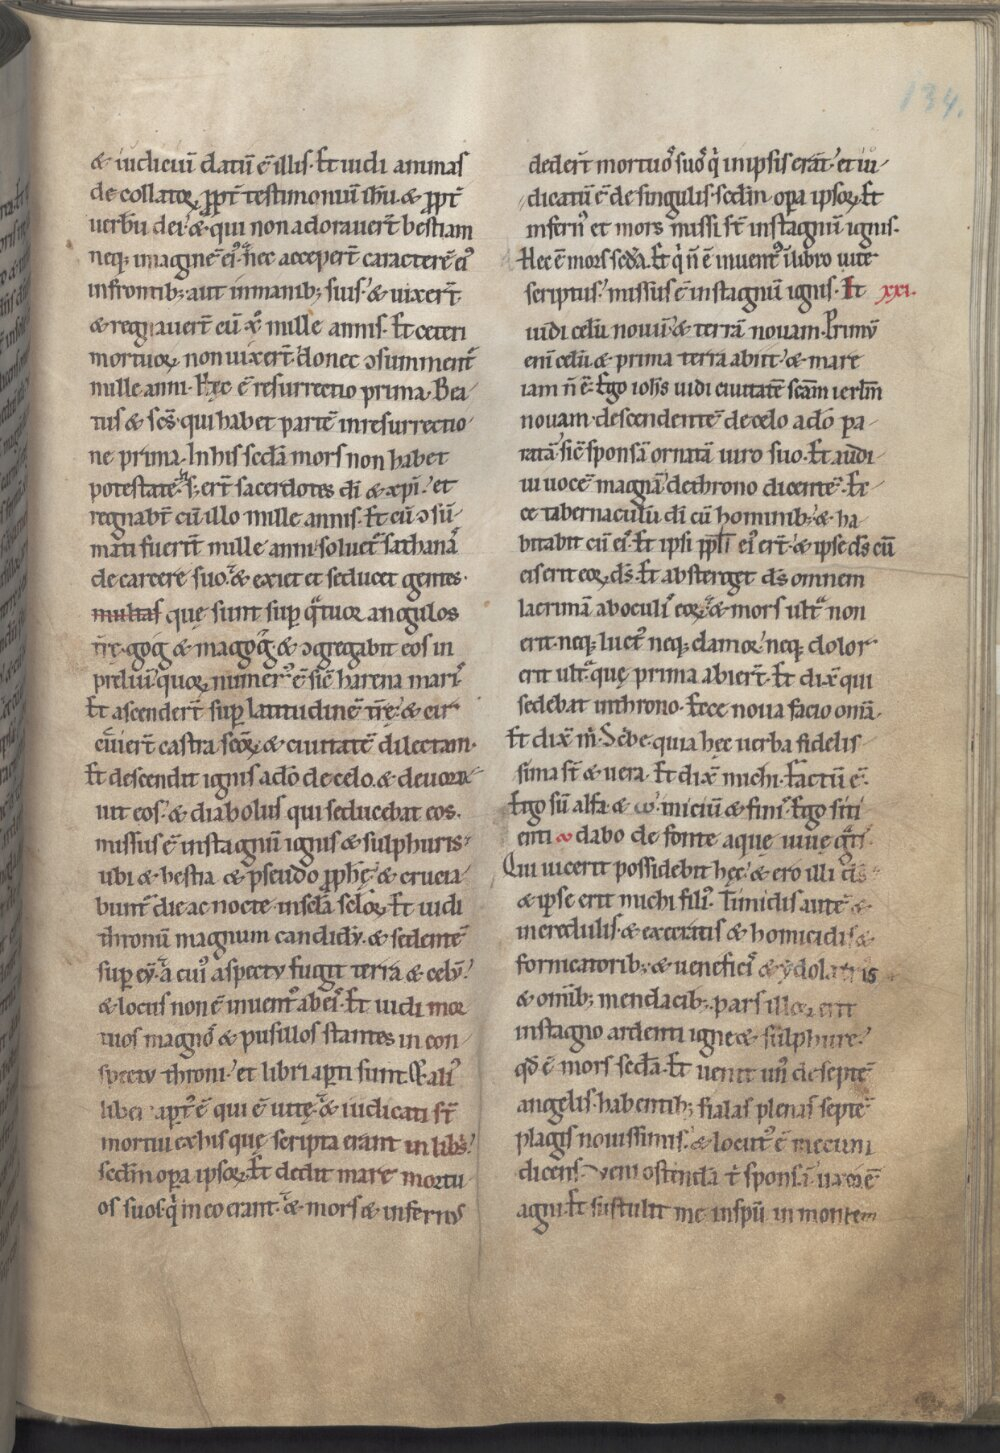 134.
& iudiciū datū ē illis. Et uidi animas
decollatoꝝ ꝓpt̄ testimoniū ihū. & ꝓpt̄
uerbū dei. & qui non adorauer̄t bestiam
neq; imaginē ei᾽. nec acceper̄t caracterē ei᾽
infrontib; aut inmanib; suis. & uixer̄t
& regnauer̄t cū xp̄o mille annis. Et ceteri
mortuoꝝ non uixer̄t donec ↄsumment᾽
mille anni. Hęc ē resurrectio prima. Bea-
tus & sc̄s qui habet partē inresurrectio-
ne prima. In his sc̄da mors non habet
potestatē. s; er̄t sacerdotes dī & xp̄i. et
regnabt̄ cū illo mille annis. Et cū ↄsū-
mati fuerīt mille anni soluet᾽ sathanas
de carcere suo. & exiet et seducet gentes.
multas quę sunt suꝑ q̄tuor angulos
tr̄ę. gog & magog. & ↄgregabit eos in
preliū. quoꝝ numer᾽ ē sic̄ harena maris
Et ascender̄t suꝑ latitudinē tr̄ę. & cir-
cūier̄t castra sc̄oꝝ & ciuitatē dilectam.
Et descendit ignis ado de celo. & deuora-
uit eos. & diabolus qui seducebat eos.
missus ē instagnū ignis & sulphuris.
ubi & bestia & pseudo ꝓphę. & crucia-
bunt᾽ die ac nocte insc̄la sc̄loꝝ. Et uidi
thronū magnum candidū. & sedentē
suꝑ eū. a cui᾽ aspectu fugit terra & celū.
& locus non ē inuent᾽ ab eis. Et uidi mor-
tuos magnos & pusillos stantes in con-
spectu throni. et libri aꝑti sunt. & ali᾽
liber aꝑt᾽ ē qui ē uitę. & iudicati st̄
mortui exhis quę scripta erant in libris.
sc̄dm oꝑa ipsoꝝ. Et dedit mare mortu-
os suos q̇ in eo erant. & mors & infernus
deder̄t mortuos suos q̇ inipsis erāt. et iu-
dicatū ē de singulis sc̄dm oꝑa ipsoꝝ. Et
infern᾽ et mors missi st̄ instagnū ignis.
Hec ē mors sc̄da. Et q̇ n̄ ē inuent᾽ ī libro uite
scriptus. missus ē instagnū ignis. Et xxi.
uidi celū nouū & terrā nouam. Primū
enī celū & prima terra abiit. & mare
iam n̄ ē. Ego ioh̄s uidi ciuitatē sc̄am ierl̄m
nouam descendentē de celo ado pa-
ratā sic̄ sponsā ornatā uiro suo. Et audi-
ui uocē magnā dethrono dicentē. Ec-
ce tabernaculū dī cū hominib; & ha-
bitabit cū eis. Et ipsi ppl̄i ei᾽ er̄t. & ipse ds̄ cū
eis erit eoꝝ ds̄. Et absterget ds̄ omnem
lacrimā aboculis eoꝝ. & mors ult̄ non
erit. neq; luct᾽ neq; clamor neq; dolor
erit ult̄. quę prima abier̄t. Et dix̄ qui
sedebat inthrono. Ecce noua facio omīa.
Et dix̄ m̄. Scribe. quia hęc uerba fidelis-
sima st̄ & uera. Et dix̄ michi. Factū ē.
Ego sū alfa & ω. iniciū & finis. Ego siti-
enti dabo de fonte aquę uiuę gratis.
Qui uicerit possidebit hęc. & ero illi ds̄
& ipse erit michi fili᾽. Timidis autē &
incredulis. & execratis & homicidis &
fornicatorib; & ueneficis & ydolatris
& omīb; mendacib; pars illoꝝ erit
instagno ardenti igne & sulphure.
qd̄ ē mors sc̄da. Et uenit un᾽ de septē
angelis habentib; fialas plenas septē
plagis nouissimis. & locut᾽ ē mecum
dicens. Veni ostendā t̄ sponsā uxorē
agni. Et sustulit me inspū in montem